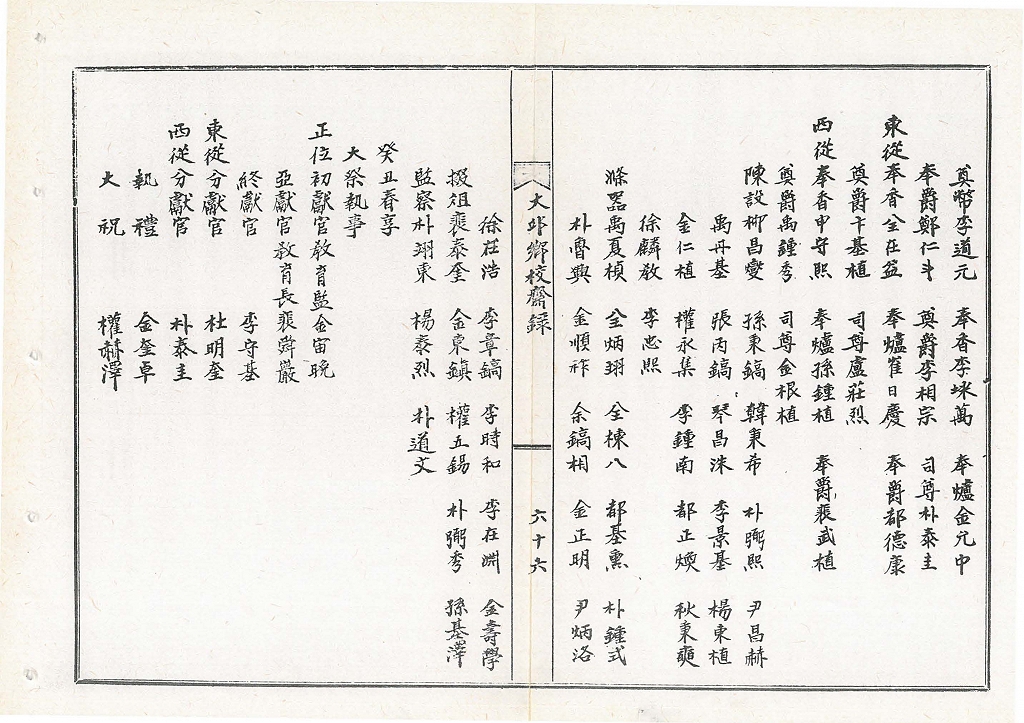 奠幣李道元 奉香李埰萬 奉爐金元中
奉爵鄭仁斗 奠爵李相宗 司尊朴泰圭
東從奉香全在益 奉爐崔日慶 奉爵都德康
奠爵卞基植 司尊盧莊烈
西從奉香申守熙 奉爐孫鍾植 奉爵裵武植
奠爵禹鍾秀 司尊金根植
陳設柳昌燮 孫秉鎬 韓秉希 朴弼熙 尹昌赫
禹丹基 張丙鎬 琴昌洙 李景基 楊東植
金仁植 權永集 李鍾南 都正煥 秋秉奭
徐麟敎 李忠熙
滌器禹夏楨 全炳翊 全棟八 都基熏 朴鍾式
朴魯興 金順祚 余鎬相 金正明 尹炳洛
大邱鄕校齋錄 六十六
徐在浩 李章鎬 李時和 李在淵 金壽學
掇俎裵泰奎 金東鎭 權五錫 朴弼秀 孫基澤
監察朴翊東 楊泰烈 朴道文
癸丑春享
大祭執事
正位初獻官敎育監金宙晩
亞獻官敎育長裵舜嚴
終獻官 李守基
東從分獻官 杜明奎
西從分獻官 朴泰圭
執禮 金奎卓
大祝 權赫澤